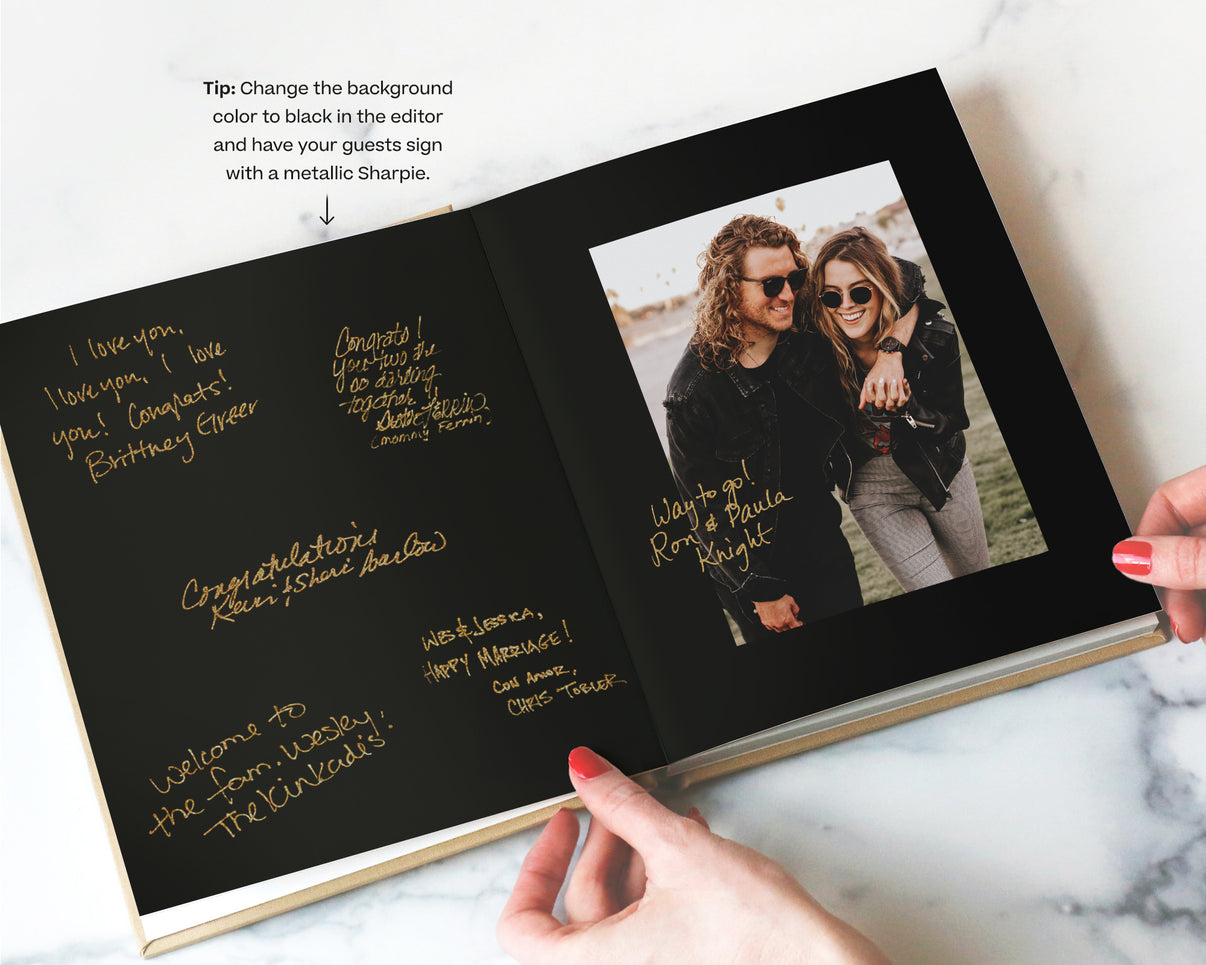 Tip: Change the background
color to black in the editor
and have your guests sign
with a metallic Sharpie.
I love you,
I love you, I love
you! Congrats!
Brittney Greer
Congrats!
You two are
so darling
together!
Ferrin
(mommy Ferrin)
Congratulations
Kevin & Shari Barlow
WES & JESSKA,
HAPPY MARRIAGE!
CON AMOR,
CHRIS TOBLER
Welcome to
the fam. Wesley!
The Kinkade's
Way to go!
Ron & Paula
Knight